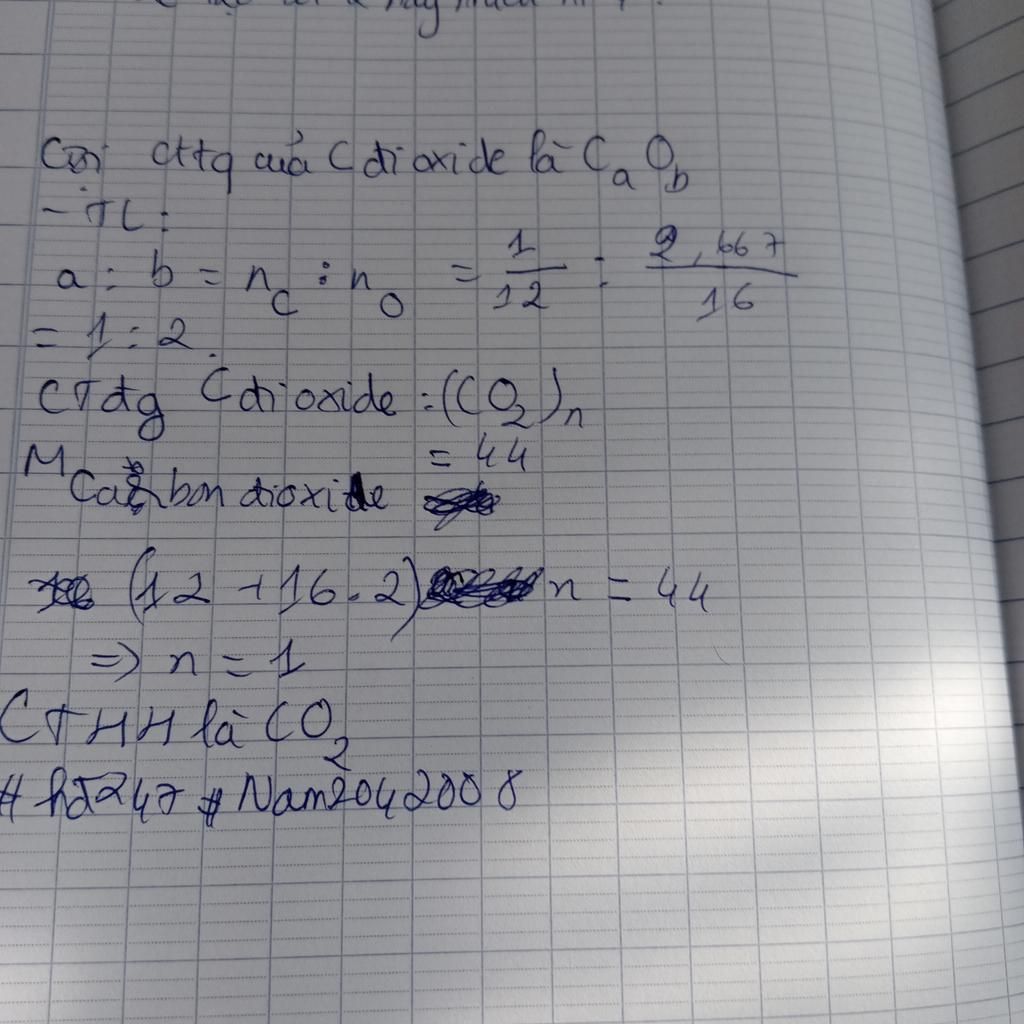 Gọi cttq của C dioxide là CₐO_b
- TL:
a : b = n_C : n_O = 1/12 : 2,667/16
= 1 : 2.
CTđg C dioxide : (CO₂)ₙ
M Carbon dioxide = 44
(12 + 16.2) n = 44
=> n = 1
CTHH là CO₂
#hđ247 #Nam2042008